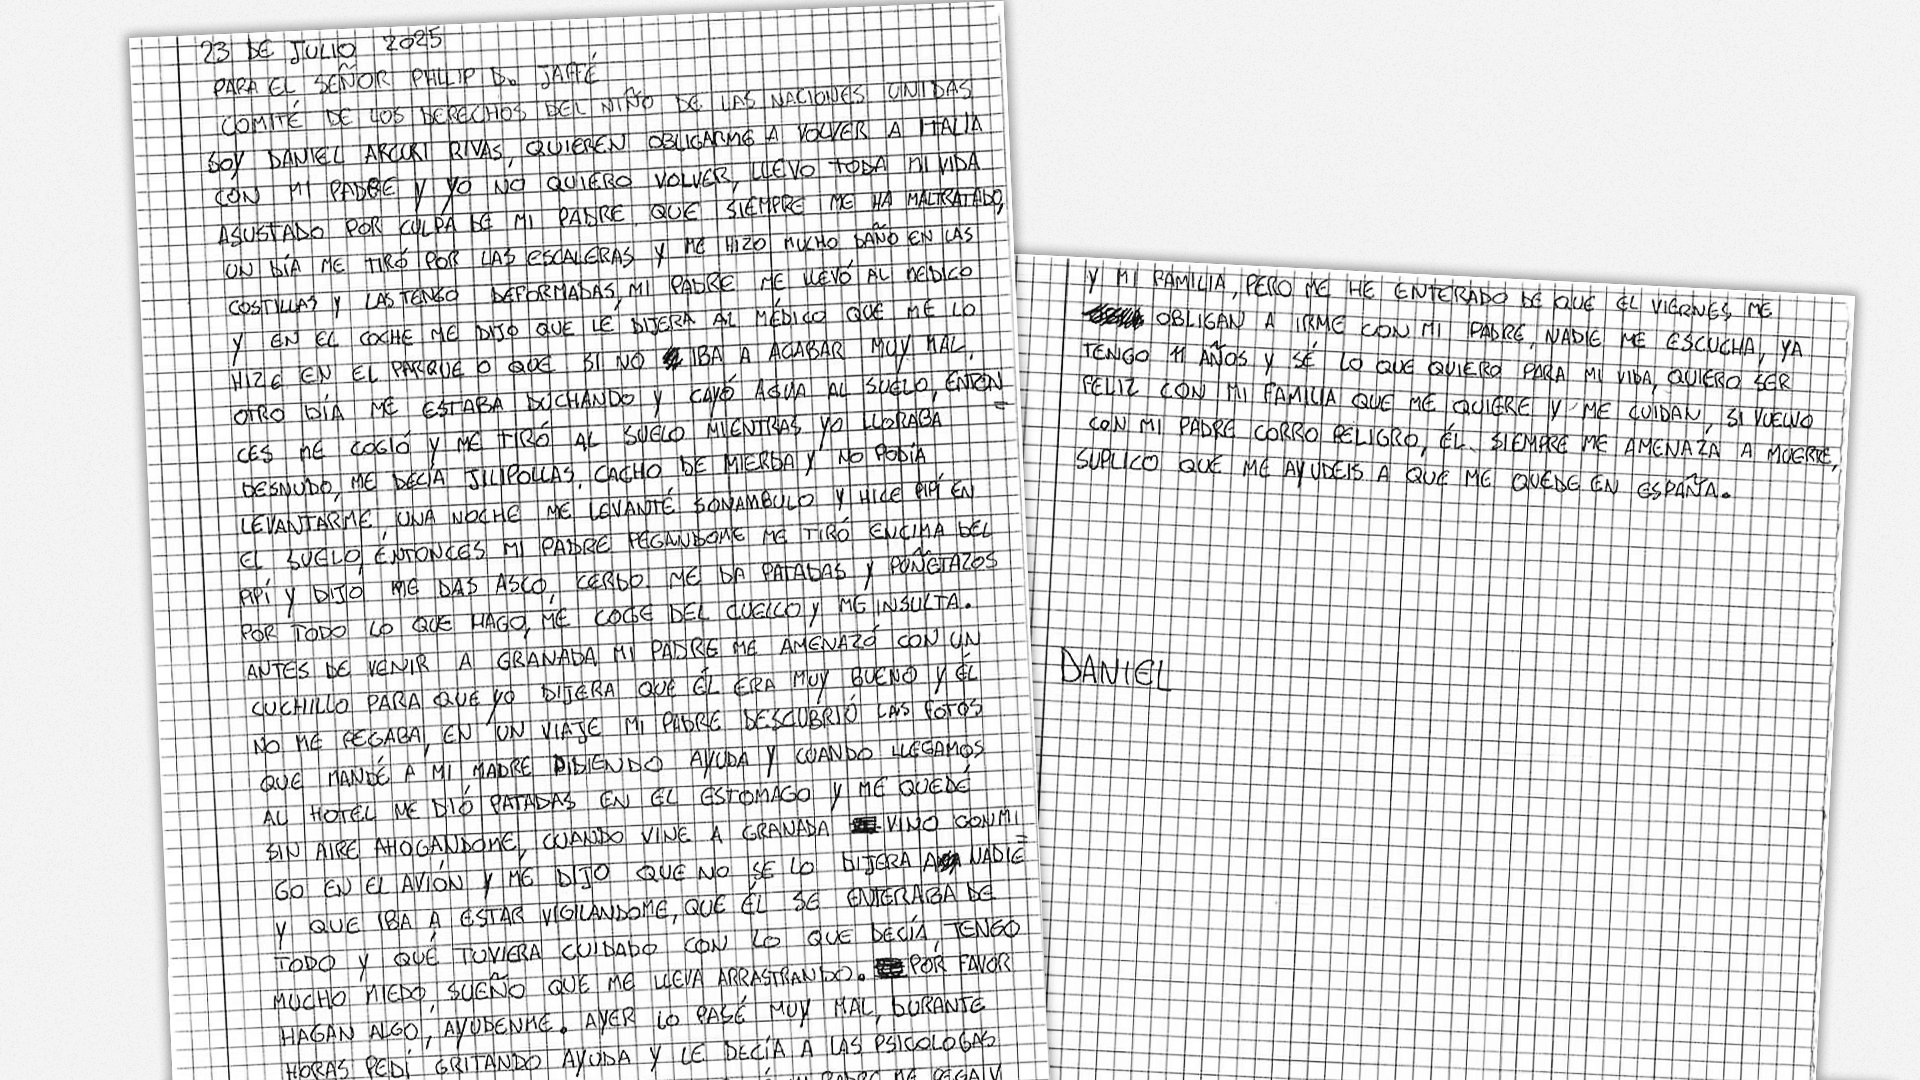 23 DE JULIO 2025
PARA EL SEÑOR PHILIP D. JAFFÉ
COMITÉ DE LOS DERECHOS DEL NIÑO DE LAS NACIONES UNIDAS
SOY DANIEL ARCURI RIVAS, QUIEREN OBLIGARME A VOLVER A ITALIA
CON MI PADRE Y YO NO QUIERO VOLVER, LLEVO TODA MI VIDA
ASUSTADO POR CULPA DE MI PADRE, QUE SIEMPRE ME HA MALTRATADO,
UN DÍA ME TIRÓ POR LAS ESCALERAS Y ME HIZO MUCHO DAÑO EN LAS
COSTILLAS Y LAS TENGO DEFORMADAS, MI PADRE ME LLEVÓ AL MEDICO
Y EN EL COCHE ME DIJO QUE LE DIJERA AL MÉDICO QUE ME LO
HIZE EN EL PARQUE O QUE SI NO IBA A ACABAR MUY MAL,
OTRO DÍA ME ESTABA DUCHANDO Y CAYÓ AGUA AL SUELO, ENTON
CES ME COGIÓ Y ME TIRÓ AL SUELO MIENTRAS YO LLORABA
DESNUDO, ME DECÍA JILIPOLLAS, CACHO DE MIERDA Y NO PODÍA
LEVANTARME, UNA NOCHE ME LEVANTÉ SONAMBULO Y HICE PIPÍ EN
EL SUELO, ENTONCES MI PADRE PEGANDOME ME TIRÓ ENCIMA DEL
PIPÍ Y DIJO ME DAS ASCO, CERDO. ME DA PATADAS Y PUÑETAZOS
POR TODO LO QUE HAGO, ME COGE DEL CUELLO Y ME INSULTA.
ANTES DE VENIR A GRANADA MI PADRE ME AMENAZÓ CON UN
CUCHILLO PARA QUE YO DIJERA QUE ÉL ERA MUY BUENO Y ÉL
NO ME PEGABA, EN UN VIAJE MI PADRE DESCUBRIÓ LAS FOTOS
QUE MANDÉ A MI MADRE PIDIENDO AYUDA Y CUANDO LLEGAMOS
AL HOTEL ME DIÓ PATADAS EN EL ESTOMAGO Y ME QUEDÉ
SIN AIRE AHOGÁNDOME, CUANDO VINE A GRANADA VINO CONMI
GO EN EL AVIÓN Y ME DIJO QUE NO SE LO DIJERA A NADIE
Y QUE IBA A ESTAR VIGILANDOME, QUE ÉL SE ENTERABA DE
TODO Y QUÉ TUVIERA CUIDADO CON LO QUE DECÍA, TENGO
MUCHO MIEDO, SUEÑO QUE ME LLEVA ARRASTRANDO. POR FAVOR
HAGAN ALGO, AYUDENME. AYER LO PASÉ MUY MAL, DURANTE
HORAS PEDÍ GRITANDO AYUDA Y LE DECÍA A LAS PSICOLOGAS
Y MI FAMILIA, PERO ME HE ENTERADO DE QUE EL VIERNES ME
OBLIGAN A IRME CON MI PADRE, NADIE ME ESCUCHA, YA
TENGO 11 AÑOS Y SÉ LO QUE QUIERO PARA MI VIDA, QUIERO SER
FELIZ CON MI FAMILIA QUE ME QUIERE Y ME CUIDAN, SI VUELVO
CON MI PADRE CORRO PELIGRO, ÉL SIEMPRE ME AMENAZA A MUERTE,
SUPLICO QUE ME AYUDEIS A QUE ME QUEDE EN ESPAÑA.
DANIEL